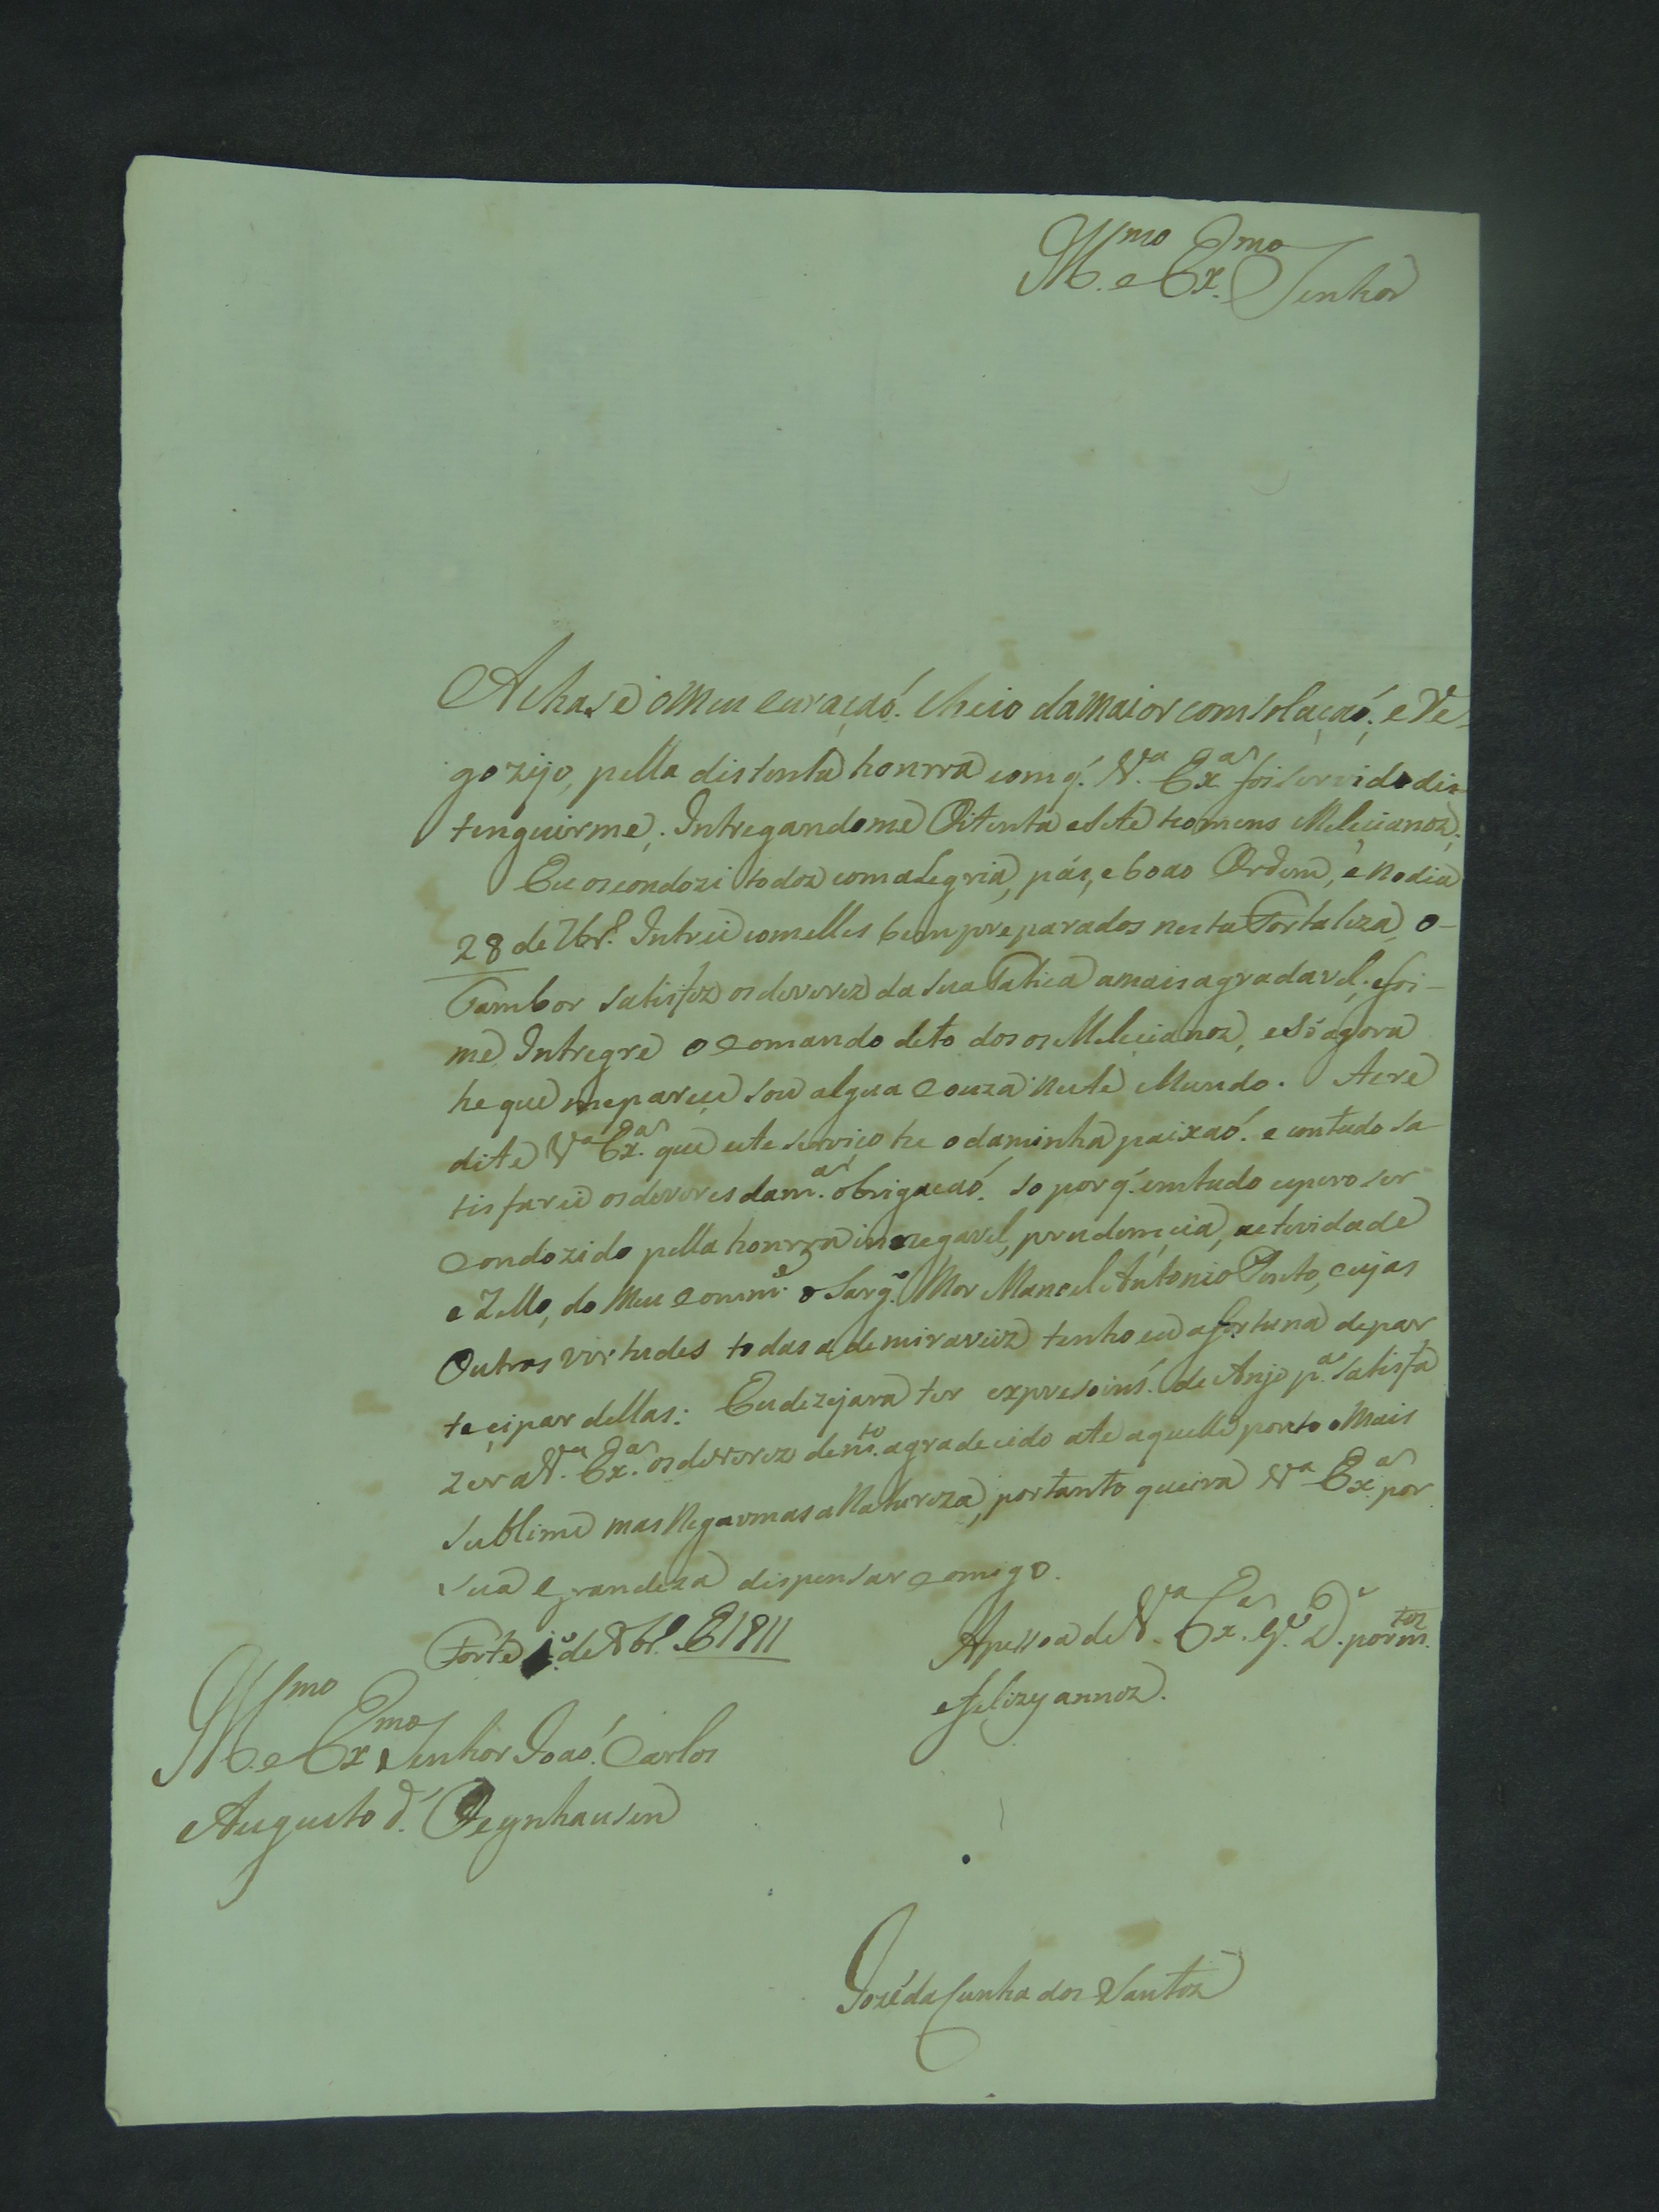 Ill.mo e Ex.mo Senhor
Achase o Meu Curaçaó. Cheio da Maior comsolaçaó; e Re-
gozijo, pella distenta honrra com q̃. V.a Ex.a foi Servido dis-
tenguirme; Intregandome Oitenta e Sete homens Meliçianoz;
Eu os condozi todoz com alegria, pás, e boa Ordem, e no dia
28 de 7br.o Intrei com elles bem preparados nesta Fortaleza, o
Tambor satisfez os deverez da sua Tatica a mais agradavel; e foi-
me Intregre o Comando de todos os Meliçianoz, e só agora
he que me pareçe sou algua Couza neste Mundo. Acre
dite V.a Ex.a que este serviço he o da minha paixaó. e contudo sa-
tisfarei os deveres da m.a obrigaçaó. so por q̃. em tudo espero ser
Condozido pella honrra innegavel, prudençia, actividade
e Zello, do Meu Comm.e o Sarg.o Mor Manoel António Pinto, cujas
Outras virtudes todas ademiraveiz tenho eu a fortuna de par
teçipar dellas: Eu dezejara ter expresoins. de Anjo p.a satisfa
zer a V.a Ex.a os deverez de m.to agradecido ate aquelle ponto o Mais
sublime mas Negarmas a Natureza, portanto queira V.a Ex.a por
sua Grandeza dispensar Comigo.
Forte 1.o de 8br.o E 1811
A pessoa de V.a Ex.a G.e D.s por m.toz
e felizez annoz.
Ill.mo e Ex.mo Senhor Joaó. Carlos
Augusto d'. Oeynhausen
Jozé da Cunha dos Santoz